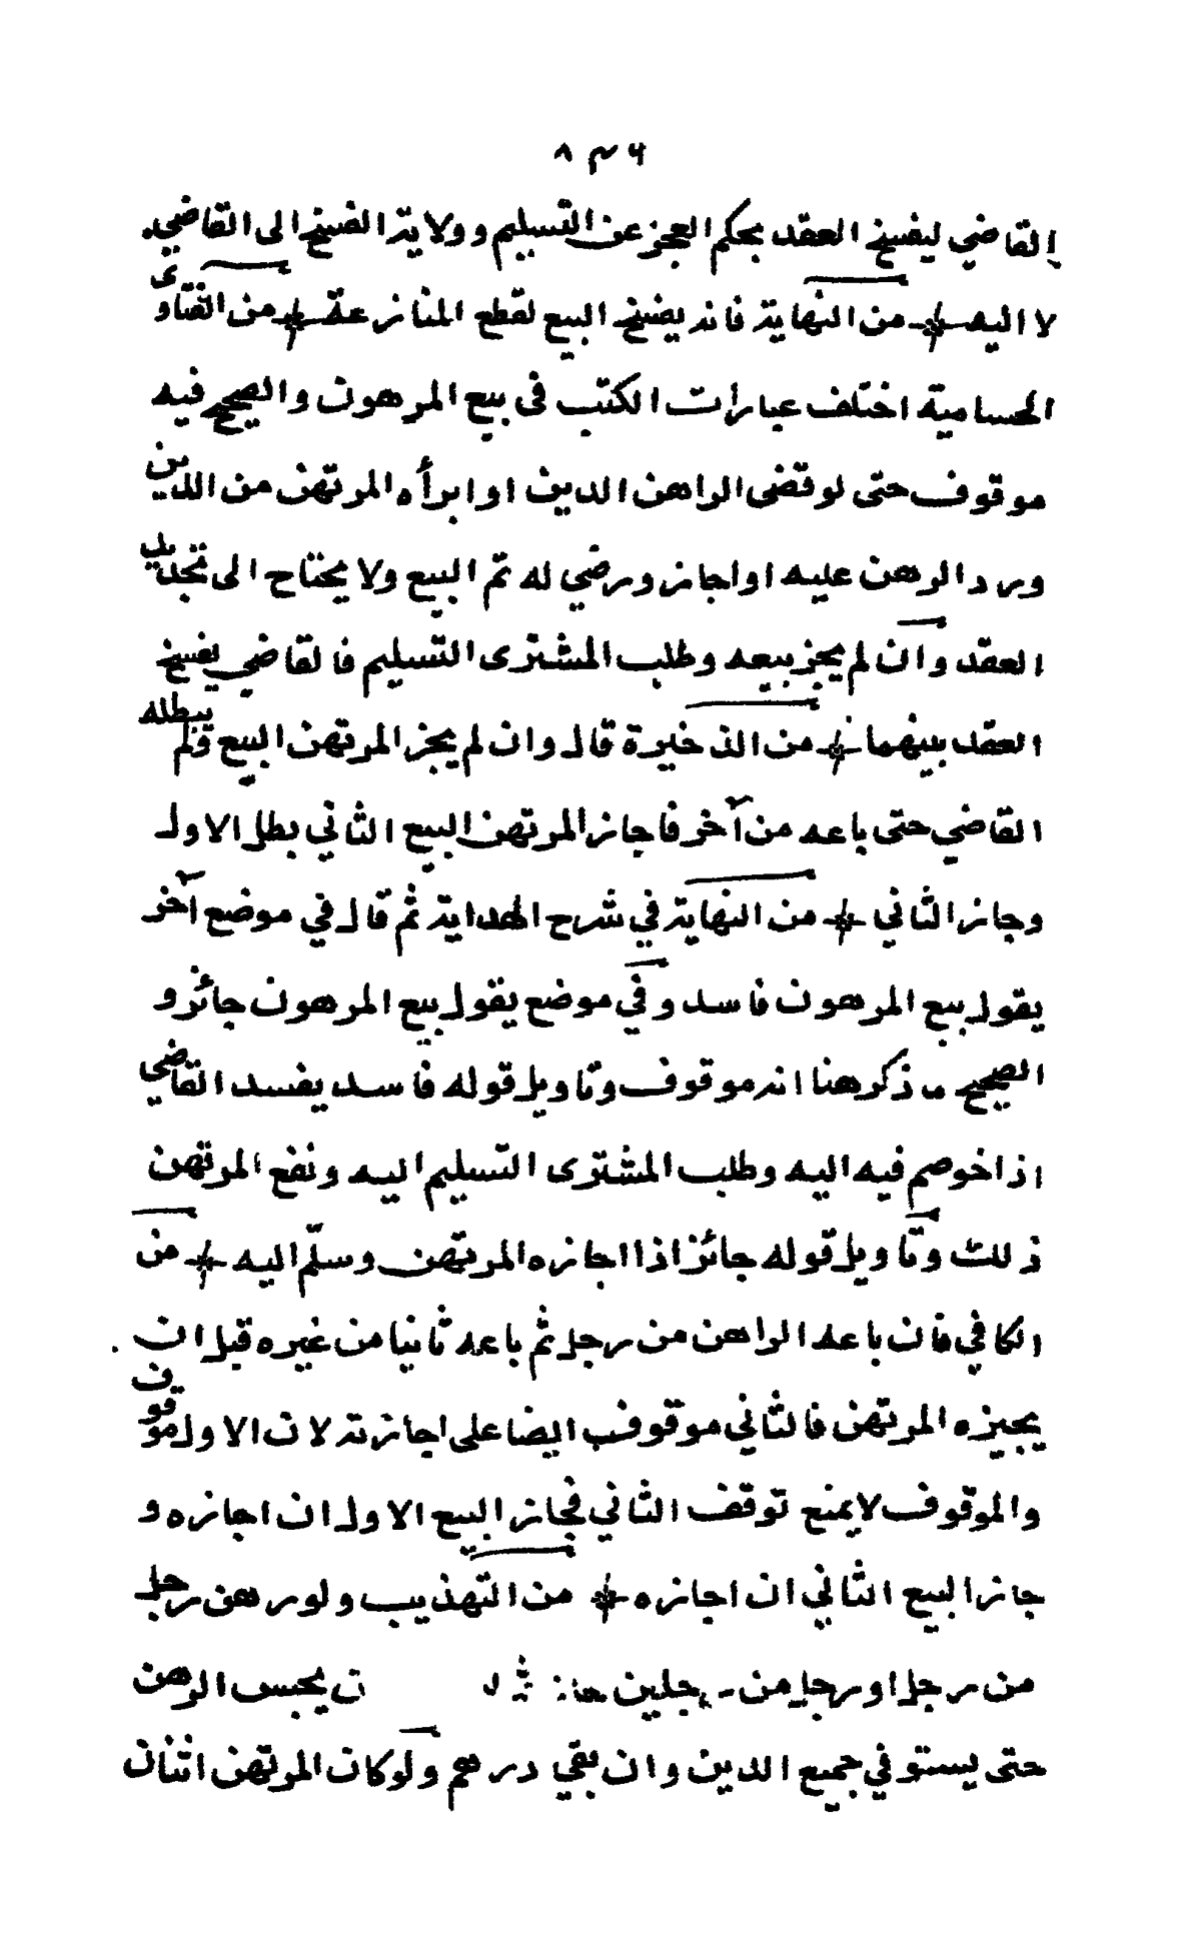 ٨٣٦
القاضي ليفسخ العقد بحكم العجز عن التسليم وولاية الفسخ الى القاضي
لا اليه من النهاية فانه يفسخ البيع لقطع المنازعة من الفتاوى
الحسامية اختلف عبارات الكتب فى بيع المرهون والصحيح فيه
موقوف حتى لو قضى الراهن الدين او ابرأه المرتهن من الدين
ورد الرهن عليه او اجاز ورضي له تم البيع ولا يحتاج الى تجديد
العقد وان لم يجز بيعه وطلب المشترى التسليم فالقاضي يفسخ
العقد بينهما من الذخيرة قال وان لم يجز المرتهن البيع ولم يبطله
القاضي حتى باعه من آخر فاجاز المرتهن البيع الثاني بطل الاول
وجاز الثاني من النهاية في شرح الهداية ثم قال في موضع آخر
يقول بيع المرهون فاسد وفي موضع يقول بيع المرهون جائز و
الصحيح ما ذكر هنا انه موقوف وتاويل قوله فاسد يفسد القاضي
اذا خوصم فيه اليه وطلب المشترى التسليم اليه ونفع المرتهن
ذلك وتاويل قوله جائز اذا اجازه المرتهن وسلّم اليه من
الكافي فان باعه الراهن من رجل ثم باعه ثانيا من غيره قبل ان
يجيزه المرتهن فالثاني موقوف ايضا على اجازته لان الاول موقوف
والموقوف لا يمنع توقف الثاني فجاز البيع الاول ان اجازه و
جاز البيع الثاني ان اجازه من التهذيب ولو رهن رجل
من رجل او رجل من رجلين جاز ن يحبس الرهن
حتى يستوفي جميع الدين وان بقي درهم ولو كان المرتهن اثنان